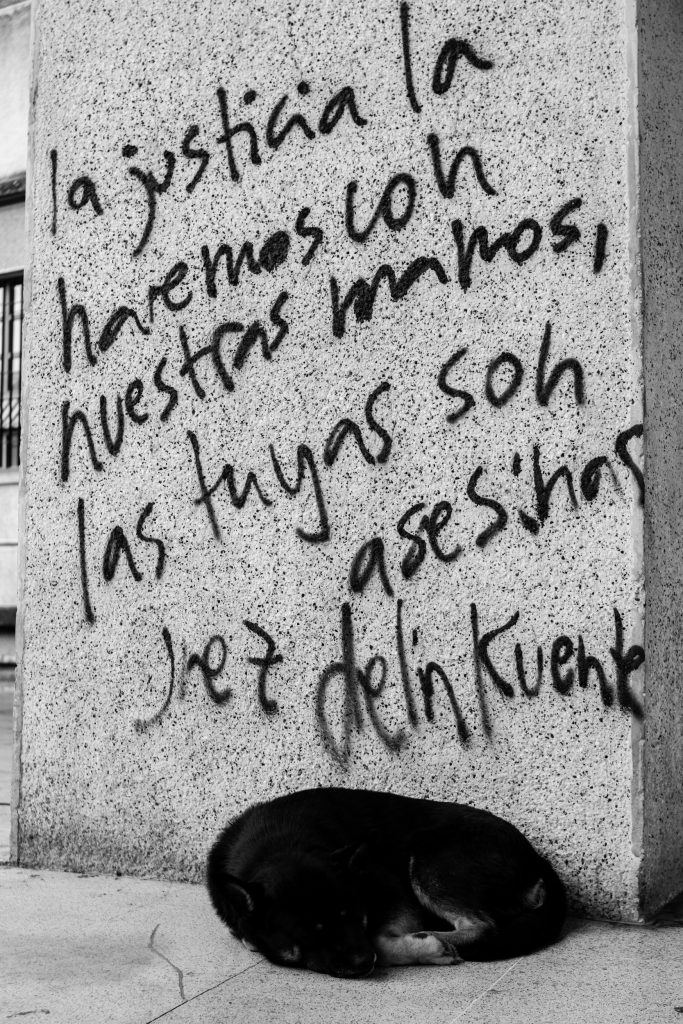 la justicia la
haremos con
nuestras manos,
las tuyas son
asesinas
Juez delinkuente